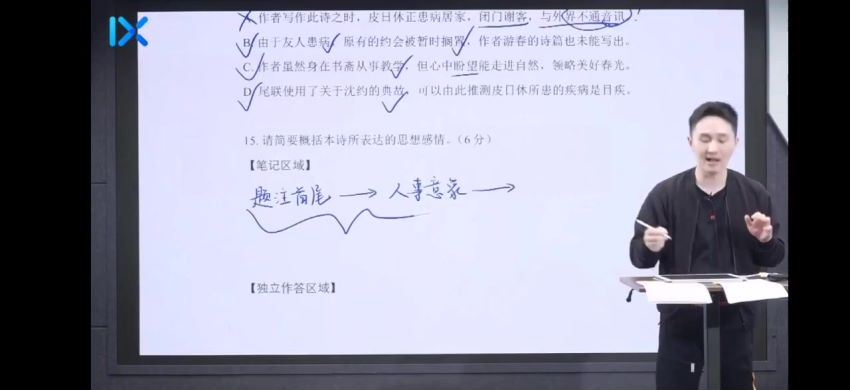 A.作者写作此诗之时，皮日休正患病居家，闭门谢客，与外界不通音讯。
B.由于友人患病，原有的约会被暂时搁置，作者游春的诗篇也未能写出。
C.作者虽然身在书斋从事教学，但心中盼望能走进自然、领略美好春光。
D.尾联使用了关于沈约的典故，可以由此推测皮日休所患的疾病是目疾。
15.请简要概括本诗所表达的思想感情。（6分）
【笔记区域】
题注首尾 → 人事意象 →
【独立作答区域】